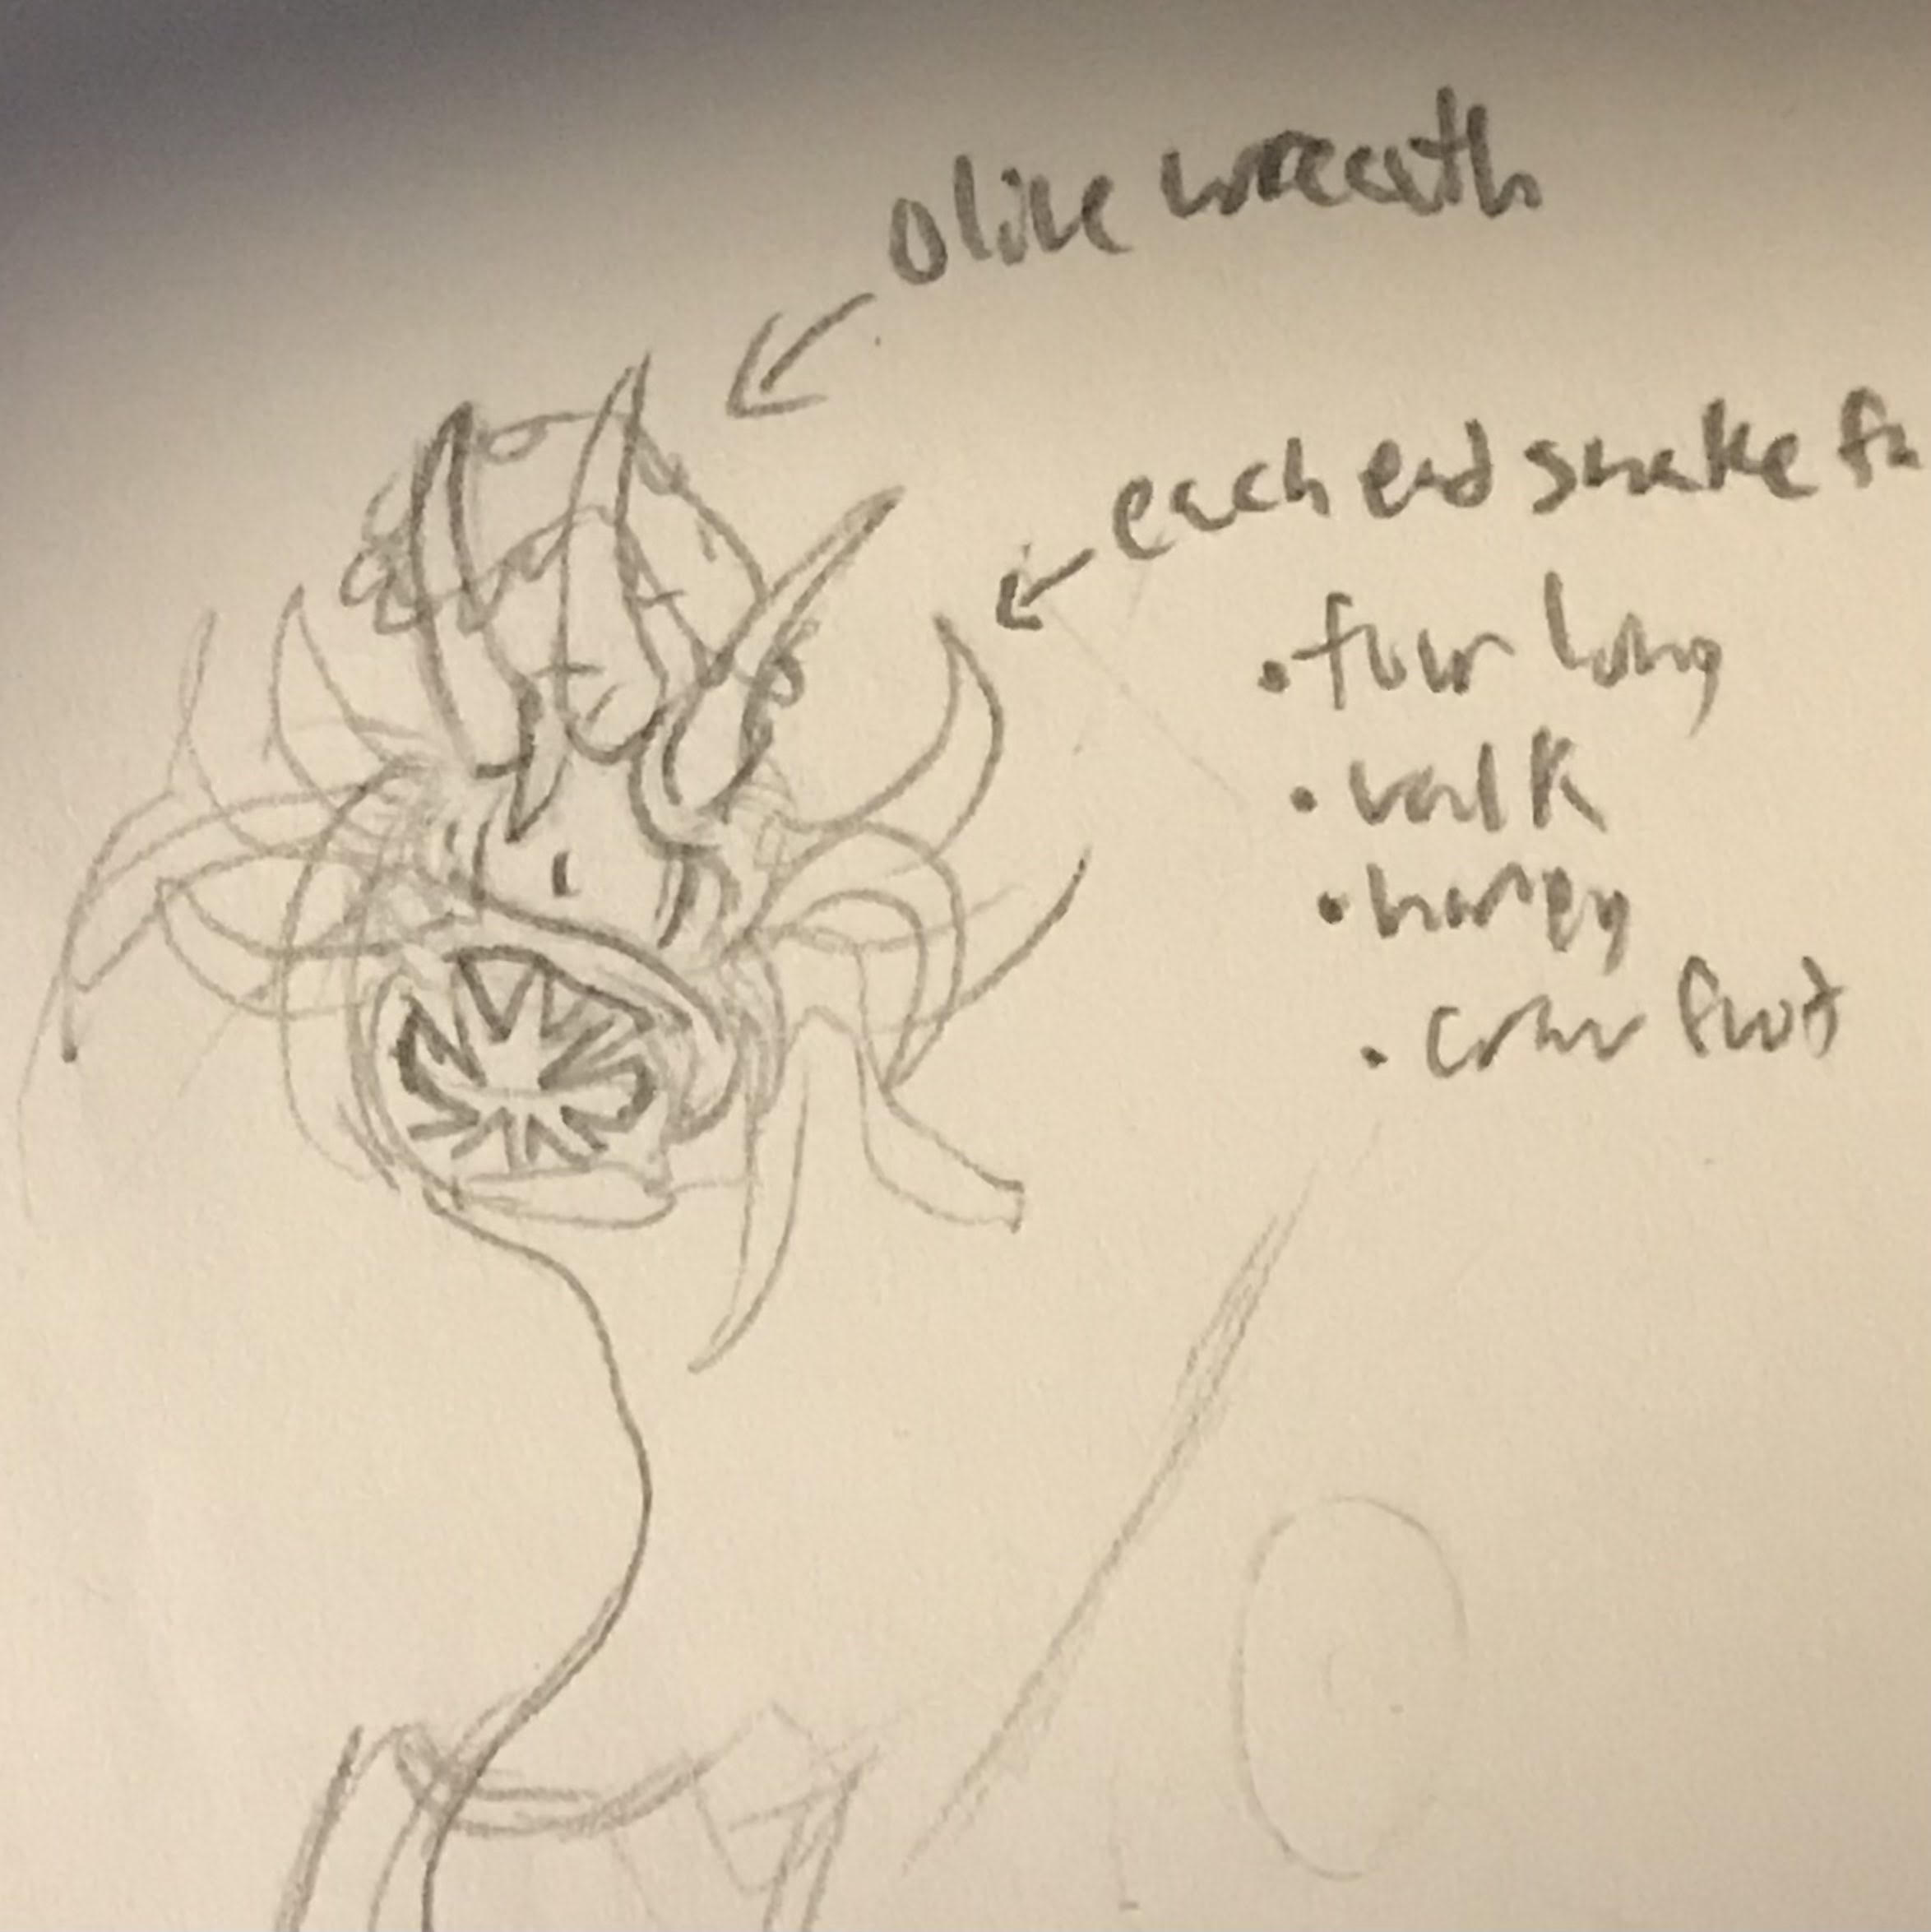 olive wreath
each end snake fa
• four long
• walk
• harpy
• crow foot